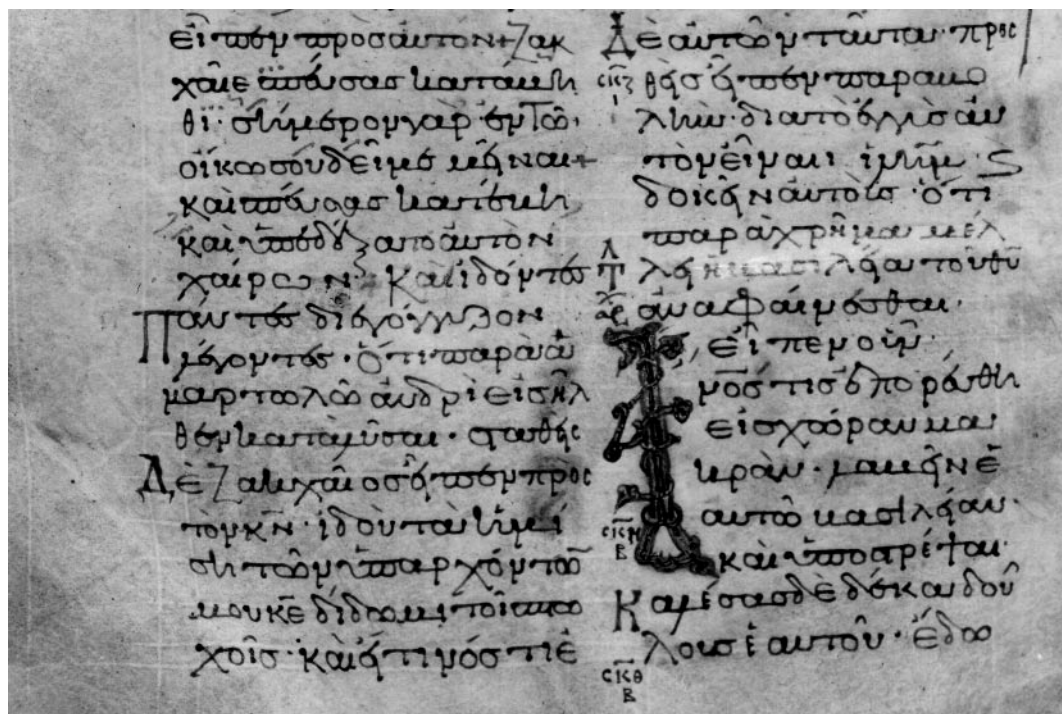 εἶπεν πρὸς αὐτὸν + Ζακ
χαῖε σπεύσας κατάβη
θι· σήμερον γὰρ ἐν τῶ
οἴκω σου δεῖ με μεῖναι +
καὶ σπεύσας κατέβη
καὶ ὑπεδέξατο αὐτὸν
χαίρων· Καὶ ἰδόντες
Πάντες διεγόγγυζον
λέγοντες· ὅτι παρὰ ἁ
μαρτωλῶ ἀνδρὶ εἰσῆλ
θεν καταλῦσαι· σταθεὶς
Δὲ Ζακχαῖος εἶπεν πρὸς
τὸν κ̅ν̅· ἰδοὺ τὰ ἡμί
ση τῶν ὑπαρχόντω
μου κ̅ε̅ δίδωμι τοῖς πτω
χοῖς· καὶ εἴ τινός τι ἐ
Δὲ αὐτῶν ταῦτα· προς
σκζ θεὶς εἶπεν παραβο
λὴν· διὰ τὸ ἐγγὺς αὐ
τὸν εἶναι ἰ̅λ̅η̅μ̅· ϛ
δοκεῖν αὐτοῖς· ὅτι
παραχρῆμα μέλ
λει ἡ βασιλεία τοῦ θ̅υ̅
ἀναφαίνεσθαι·
εἶπεν οὖν·
Α νο̅ς τις ἐπορεύθη
εἰς χώραν μα
κρὰν· λαβεῖν ἑ
αυτῶ βασιλείαν·
σκη β καὶ ὑποστρέψαι·
Καλέσας δὲ δέκα δού
λους ἑαυτοῦ· ἔδω
σκθ β